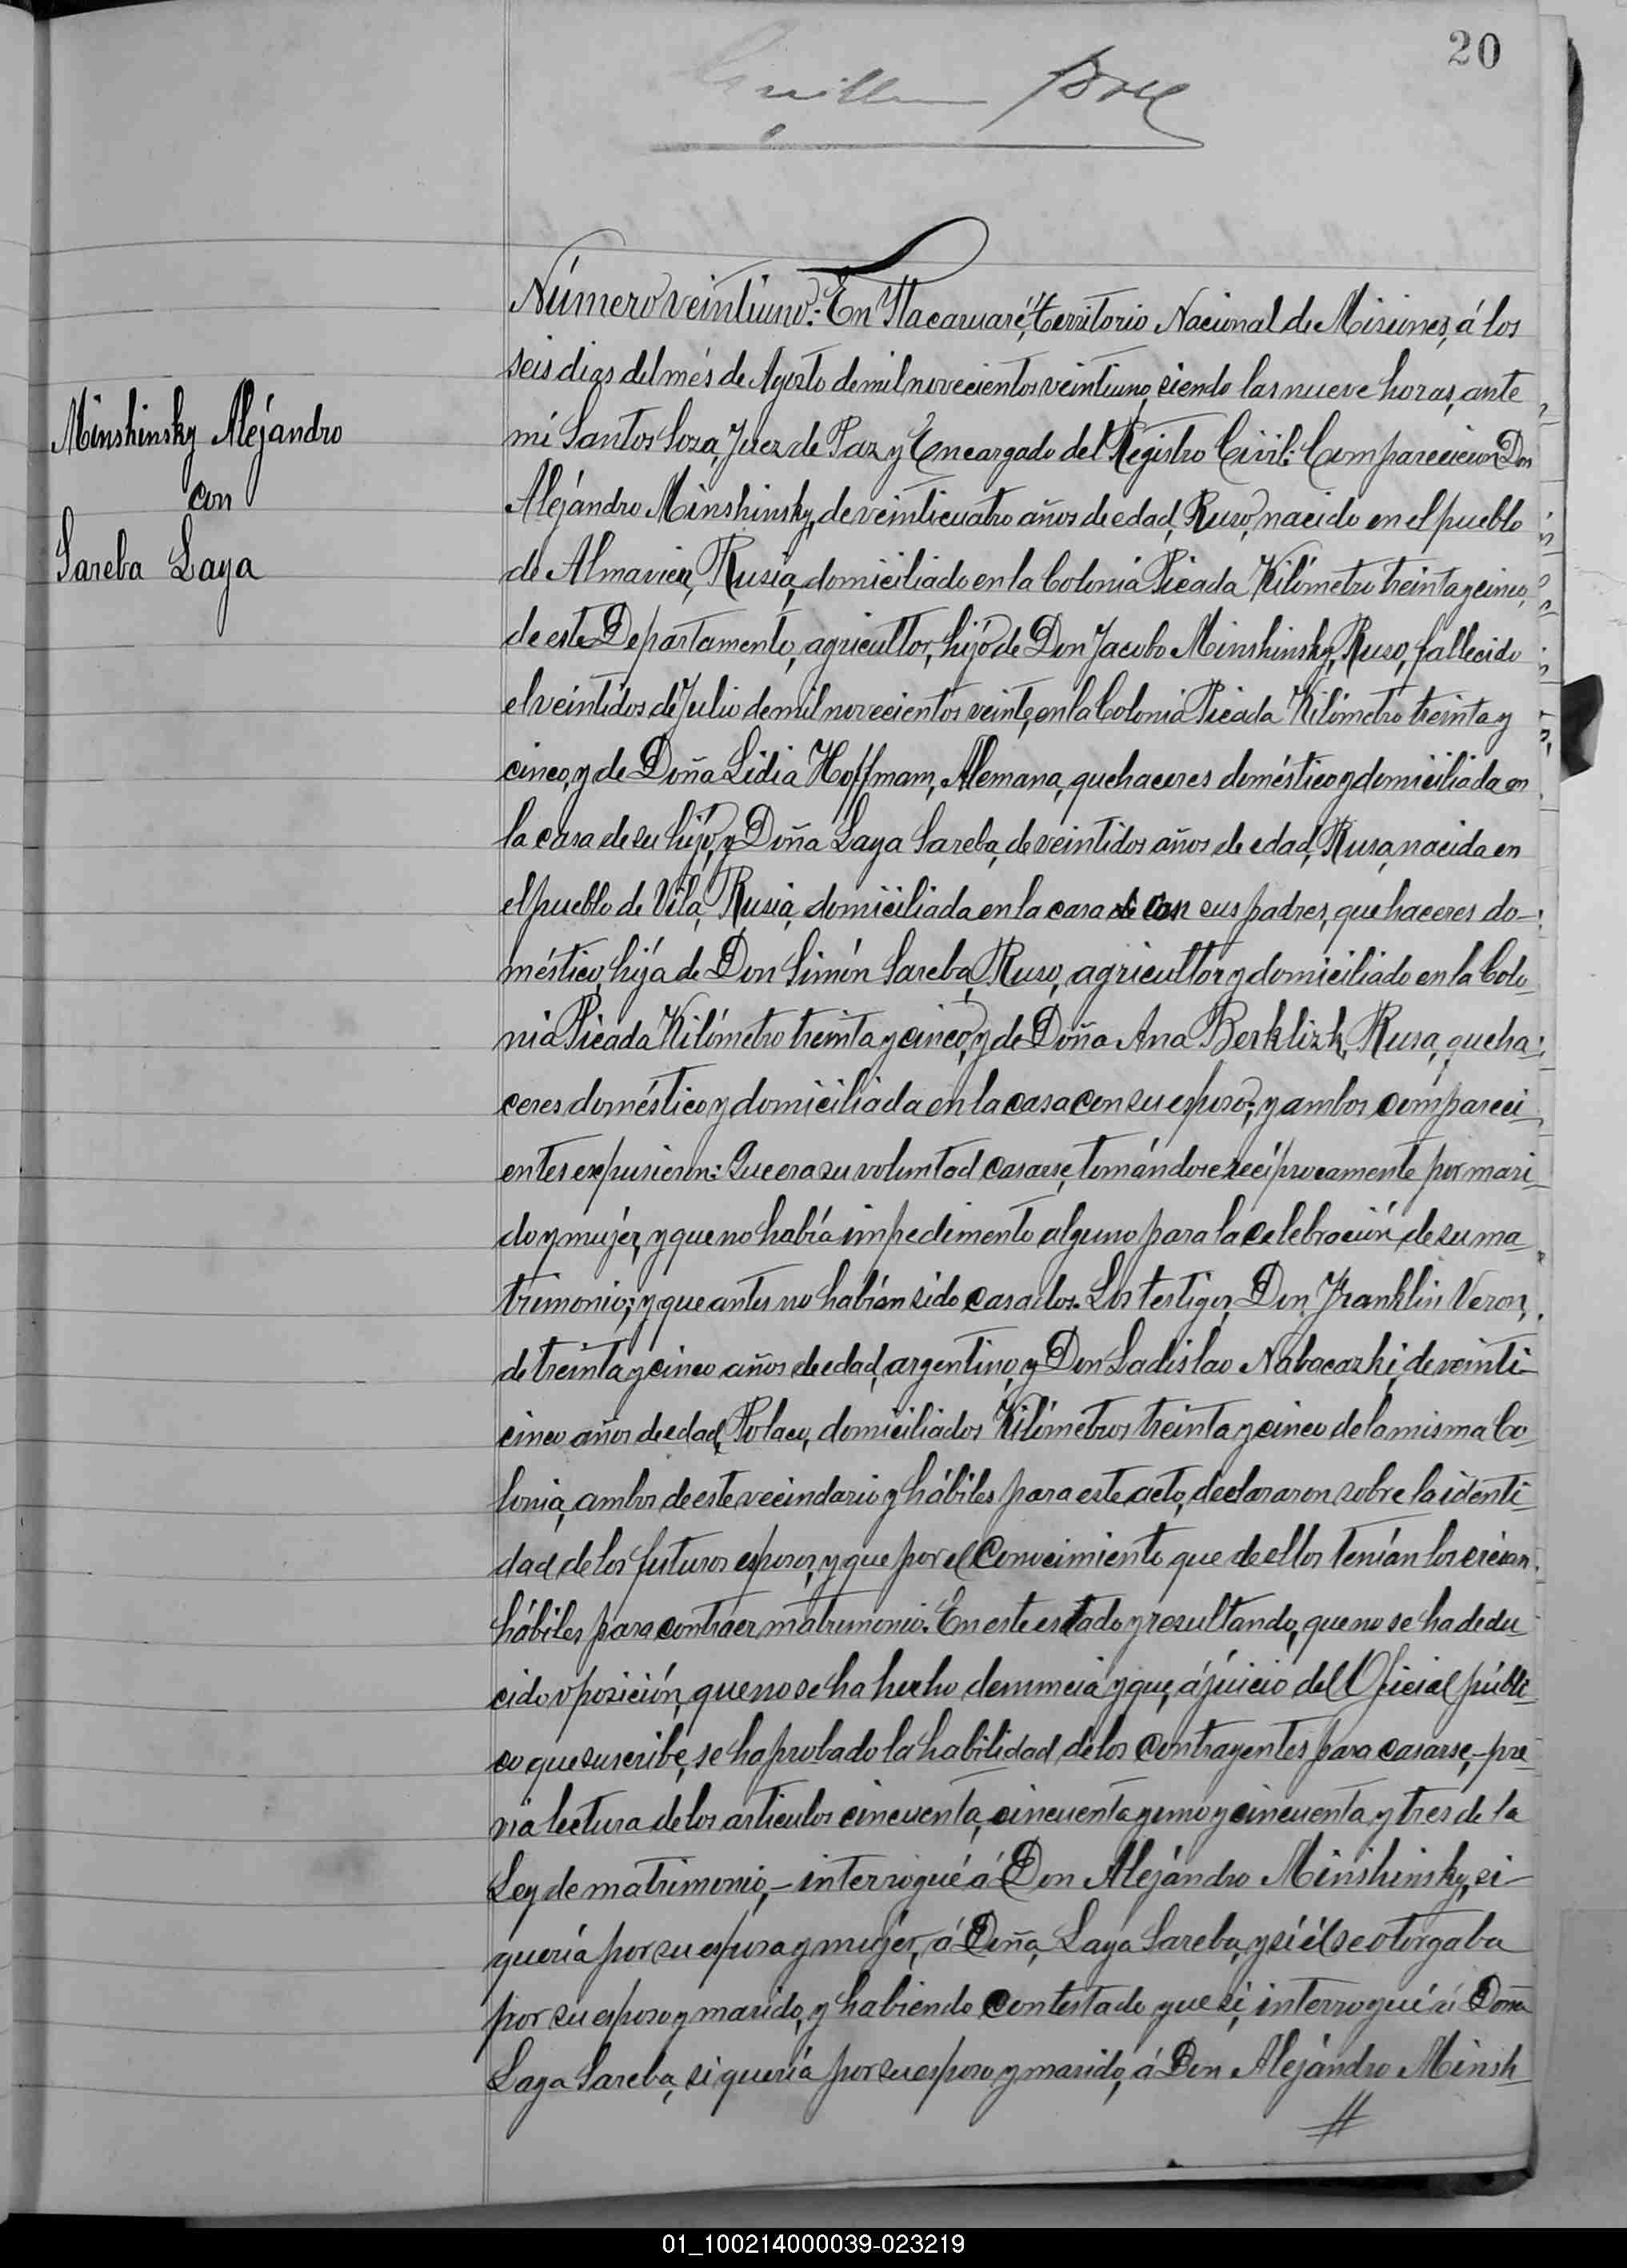 20
Guillermo
Número veintiuno: En Itacaruaré, territorio Nacional de Misiones, á los
seis dias del més de Agosto de mil novecientos veintiuno, siendo las nueve horas, ante
Minshinsky Alejándro
con
Sareba Laya
mi Santos Sosa, Juez de Paz y Encargado del Registro Civil: Comparecieron Don
Alejándro Minshinsky, de veinticuatro años de edad, Ruso, nacido en el pueblo
de Almavier, Rusia, domiciliado en la Colonia Picada Kilómetro treinta y cinco,
de este Departamento, agricultor, hijo de Don Jacobo Minshinsky, Ruso, fallecido
el veintidos de Julio de mil novecientos veinte, en la Colonia Picada Kilómetro treinta y
cinco, y de Doña Lidia Hoffmam, Alemana, quehaceres doméstico y domiciliada en
la casa de su hijo, y Doña Laya Sareba, de veintidos años de edad, Rusa, nacida en
el pueblo de Vila, Rusia, domiciliada en la casa de con sus padres, quehaceres do-
méstico, hija de Don Simón Sareba, Ruso, agricultor y domiciliado en la Colo-
nia Picada Kilómetro treinta y cinco, y de Doña Ana Berklizk, Rusa, queha-
ceres doméstico y domiciliada en la casa con su esposo; y ambos compareci-
entes expusieron: Que era su voluntad casarse, tomándose recíprocamente por mari-
do y mujer, y que no había impedimento alguno para la celebración de su ma-
trimonio; y que antes no habían sido casados. Los testigos, Don Franklin Veron,
de treinta y cinco años de edad, argentino, y Don Ladislao Nabacazki, de veinti-
cinco años de edad, Polaco, domiciliados Kilómetros treinta y cinco de la misma Co-
lonia, ambos de este vecindario y hábiles para este acto, declararon sobre la identi-
dad de los futuros esposos, y que por el Conocimiento que de ellos tenían los creian
hábiles para contraer matrimonio. En este estado y resultando, que no se ha dedu-
cido oposición, que no se ha hecho denuncia y que, á juicio del Oficial públi-
co que suscribe, se ha probado la habilidad de los Contrayentes para casarse,- pre-
via lectura de los articulos cincuenta, cincuenta y uno y cincuenta y tres de la
Ley de matrimonio,- interrogué á Don Alejándro Minshinsky, si-
quería por su esposa y mujer, á Doña, Laya Sareba, y si él se otorgaba
por su esposo y marido, y habiendo Contestado que si, interrogué á Doña
Laya Sareba, si quería por su esposo y marido, á Don Alejándro Minsh-
//
01_100214000039-023219